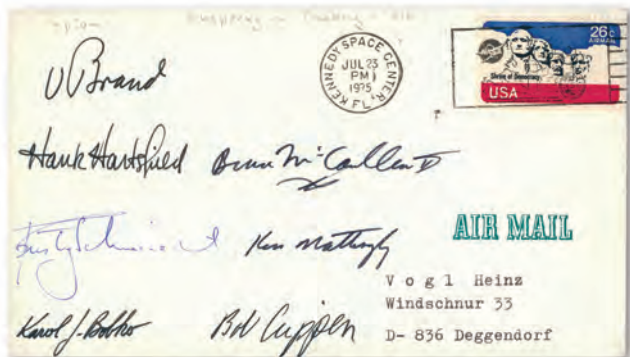 KENNEDY SPACE CENTER,
JUL 23
PM
1975
FL.
26c
AIRMAIL
Shrine of Democracy
USA
V Brand
Hank Hartsfield Bruce McCandless II
Rusty Schweickart Ken Mattingly
AIR MAIL
Karol J. Bobko Bob Crippen
Vogl Heinz
Windschnur 33
D- 836 Deggendorf